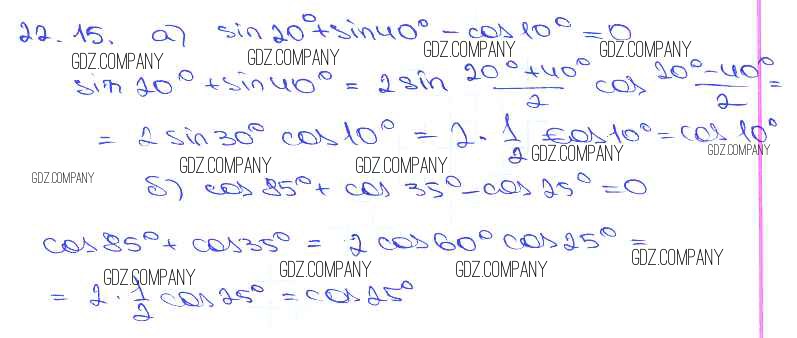 22.15. а) sin20°+sin40° - cos10° = 0
GDZ.COMPANY GDZ.COMPANY GDZ.COMPANY GDZ.COMPANY
sin 20° + sin 40° = 2 sin (20°+40°)/2 cos (20°-40°)/2 =
= 2 sin 30° cos 10° = 2 · 1/2 cos 10° = cos 10°
GDZ.COMPANY GDZ.COMPANY GDZ.COMPANY GDZ.COMPANY GDZ.COMPANY
б) cos 85° + cos 35° - cos 25° = 0
cos 85° + cos 35° = 2 cos 60° cos 25° =
GDZ.COMPANY GDZ.COMPANY GDZ.COMPANY GDZ.COMPANY
= 2 · 1/2 cos 25° = cos 25°